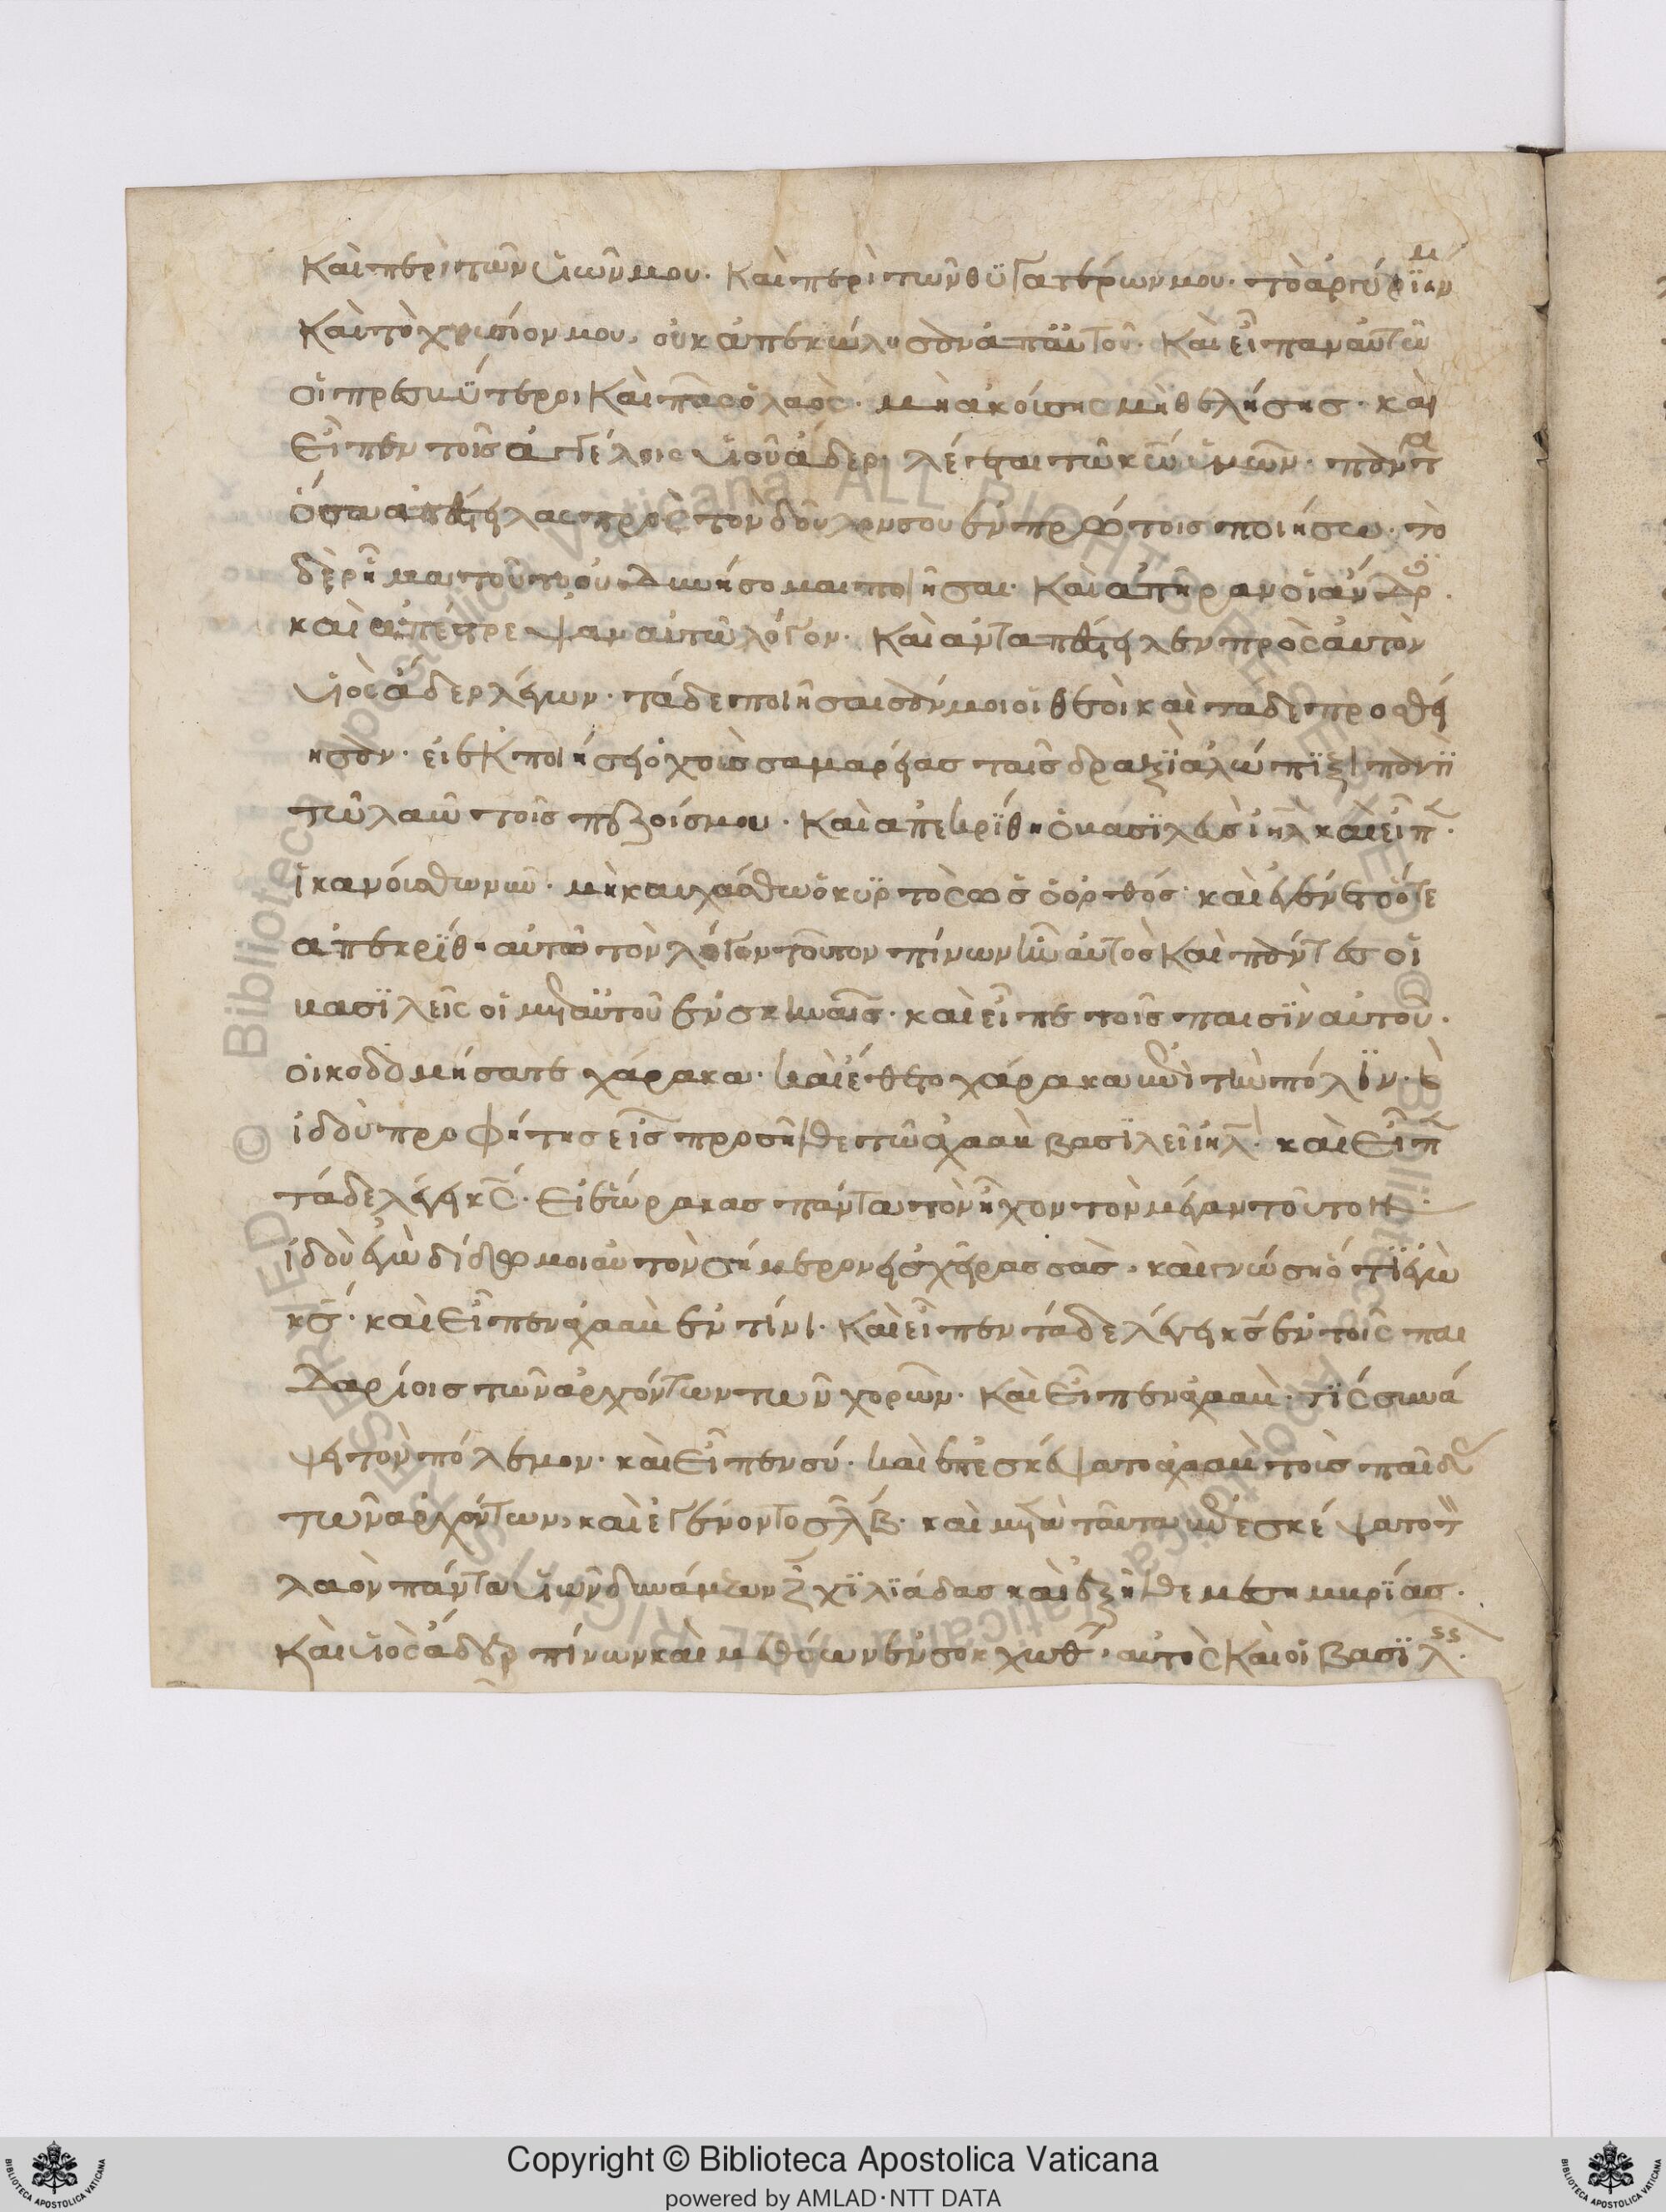 καὶ περὶ τῶν υἱῶν μου· καὶ περὶ τῶν θϋγατέρων μου· τὸ ἀργύρϊόν μ
καὶ τὸ χρυσίον μου, οὐκ ἀπεκώλυσα ἀπ αὐτοῦ· καὶ εἶπαν αὐτῶ
οἱ πρεσβϋτεροι καὶ πᾶς ὁ λαὸς· μὴ ἀκούσης μὴ θελήσης· καὶ
εἶπεν τοῖς ἀγγέλοις υἱοῦ ἄδερ· λέγεται τῶ κω ὑμῶν· πάντα
ὅσα ἀπέσταλκας πρὸς τὸν δοῦλον σου ἐν πρώτοις ποιήσω· τὸ
δὲ ρῆμα τοῦτο οὐ δυνήσομαι ποιῆσαι· καὶ ἀπῆραν οἱ ἄνδρ
καὶ ἀπέστρεψαν αὐτῶ λόγον· καὶ ἀνταπέστειλεν πρὸς αὐτὸν
υἱὸς ἄδερ λέγων· τάδε ποιῆσαισάν μοι οἱ θεοὶ καὶ τάδε προσθεί
ησαν· εἰ ἐκποιήσει ὁ χοῦς σαμαρείας ταῖς δραξὶ ἀλώπϊξι παντὶ
τῶ λαῶ τοῖς πεζοῖς μου· καὶ ἀπεκρϊθη ὁ βασϊλεὺς ιηλ καὶ εἶπ
ἱκανούσθω ὑμῖν· μὴ καυχάσθω ὁ κϋρτὸς ὡς ὁ ὀρθός· καὶ ἐγένετο ὅτε
ἀπεκρϊθη αὐτῶ τὸν λόγον τοῦτον πίνων ἦν αὐτὸς καὶ πάντες οἱ
βασϊλεῖς οἱ μετ αὐτοῦ ἐν σκηναῖς· καὶ εἶπε τοῖς παισὶν αὐτοῦ·
οἰκοδομήσατε χάρακα· καὶ ἔθετο χάρακα ἐπὶ τὴν πόλϊν· καὶ
ἰδοὺ προφήτης εἷς προσῆλθε τῶ ἀχαὰβ βασϊλεῖ ιηλ· καὶ εἶπ
τάδε λέγει κς· εἰ ἑώρακας πάντα τὸν ἦχον τὸν μέγαν τοῦτον·
ἰδοὺ ἐγὼ δίδωμι αὐτὸν σήμερον εἰς χεῖρας σὰς· καὶ γνώση ὅτϊ ἐγὼ
κς· καὶ εἶπεν ἀχαὰβ ἐν τίνι· καὶ εἶπεν τάδε λέγει κς ἐν τοῖς παι
δαρίοις τῶν ἀρχόντων τῶν χορῶν· καὶ εἶπεν ἀχαὰβ· τίς συνά
ψει τὸν πόλεμον· καὶ εἶπεν σύ· καὶ ἐπεσκέψατο ἀχαὰβ τοὺς παῖδ
τῶν ἀρχόντων, καὶ ἐγένοντο σλβ· καὶ μετὰ ταῦτα ἐπεσκέψατο τ
λαὸν πάντα υἱῶν δυνάμεων ζ χϊλϊάδας καὶ ἐξῆλθε μεσημβρίας·
καὶ υἱὸς ἄδερ πίνων καὶ μεθύων ἐν σοκχὼθ, αὐτὸς καὶ οἱ βασϊλ